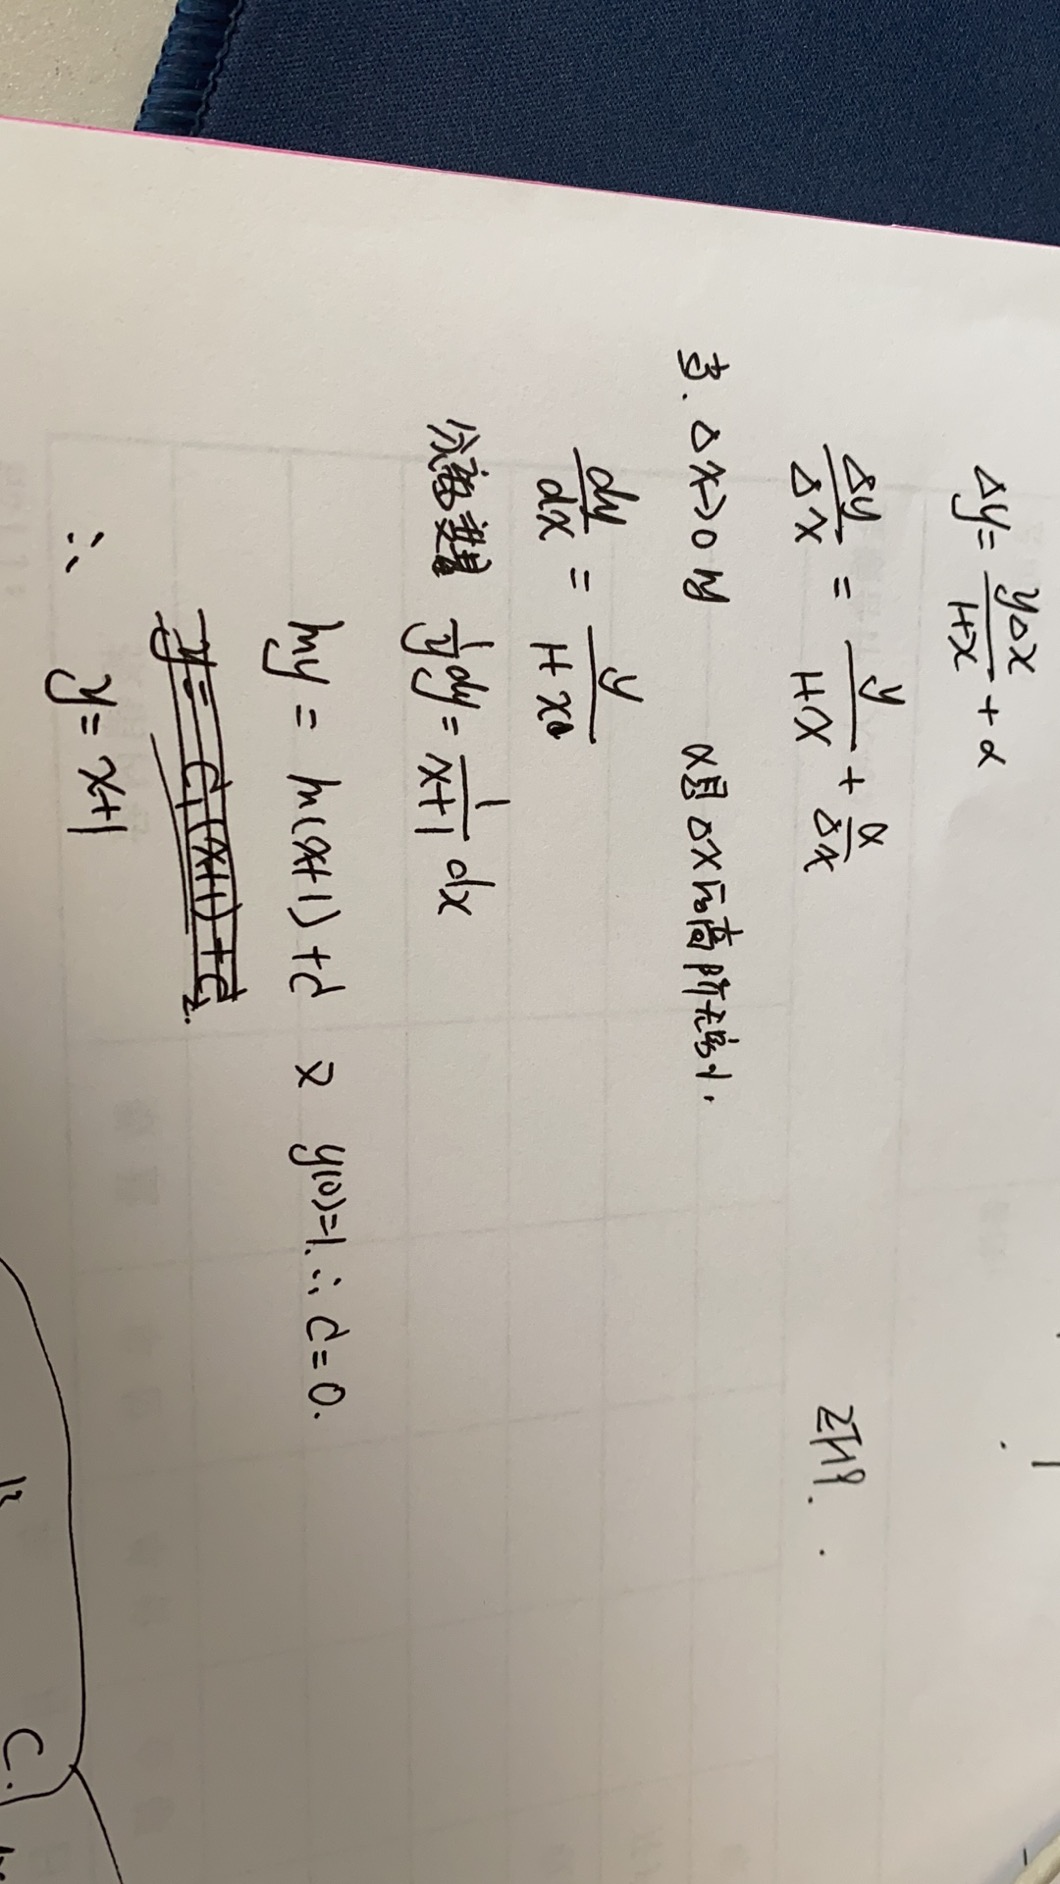 Δy = yΔx/1+x + α
Δy/Δx = y/1+x + α/Δx
当. Δx→0 时 α是Δx的高阶无穷小.
dy/dx = y/1+x
分离变量 1/y dy = 1/x+1 dx
lny = ln(x+1)+d 又 y(0)=1. ∴ d=0.
∴ y = x+1